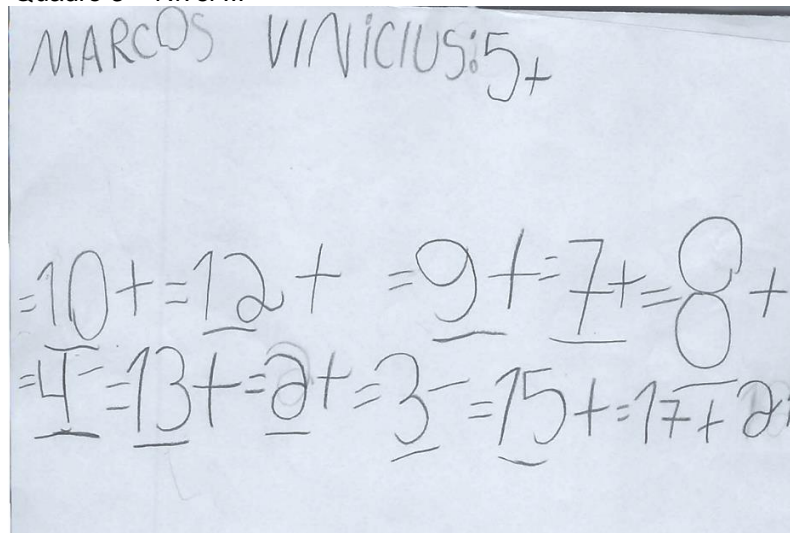 MARCOS VINICIUS: 5+
=10+ =12+ =9+ =7+ =8+
=4- =13+ =2+ =3- =15+ =17+2